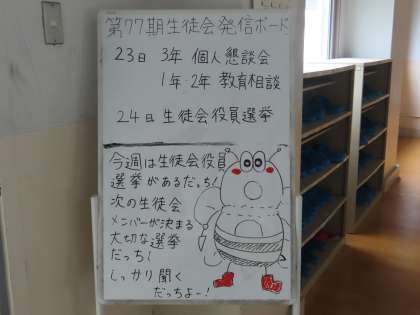 第77期生徒会発信ボード
23日 3年 個人懇談会
1年・2年 教育相談
24日 生徒会役員選挙
今週は生徒会役員
選挙があるだっち!
次の生徒会
メンバーが決まる
大切な選挙
だっち!
しっかり聞く
だっちよー!